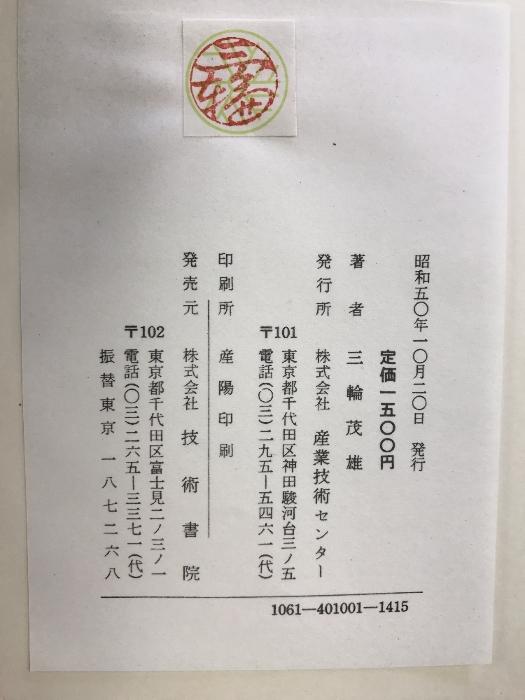 昭和五〇年一〇月二〇日 発行
定価一五〇〇円
著者 三輪茂雄
発行所 株式会社 産業技術センター
〒101 東京都千代田区神田駿河台三ノ五
電話(〇三)二九五―五四六一(代)
印刷所 産陽印刷
発売元 株式会社 技術書院
〒102 東京都千代田区富士見二ノ三ノ一
電話(〇三)二六五―三三七一(代)
振替東京 一八七二六八
1061―401001―1415